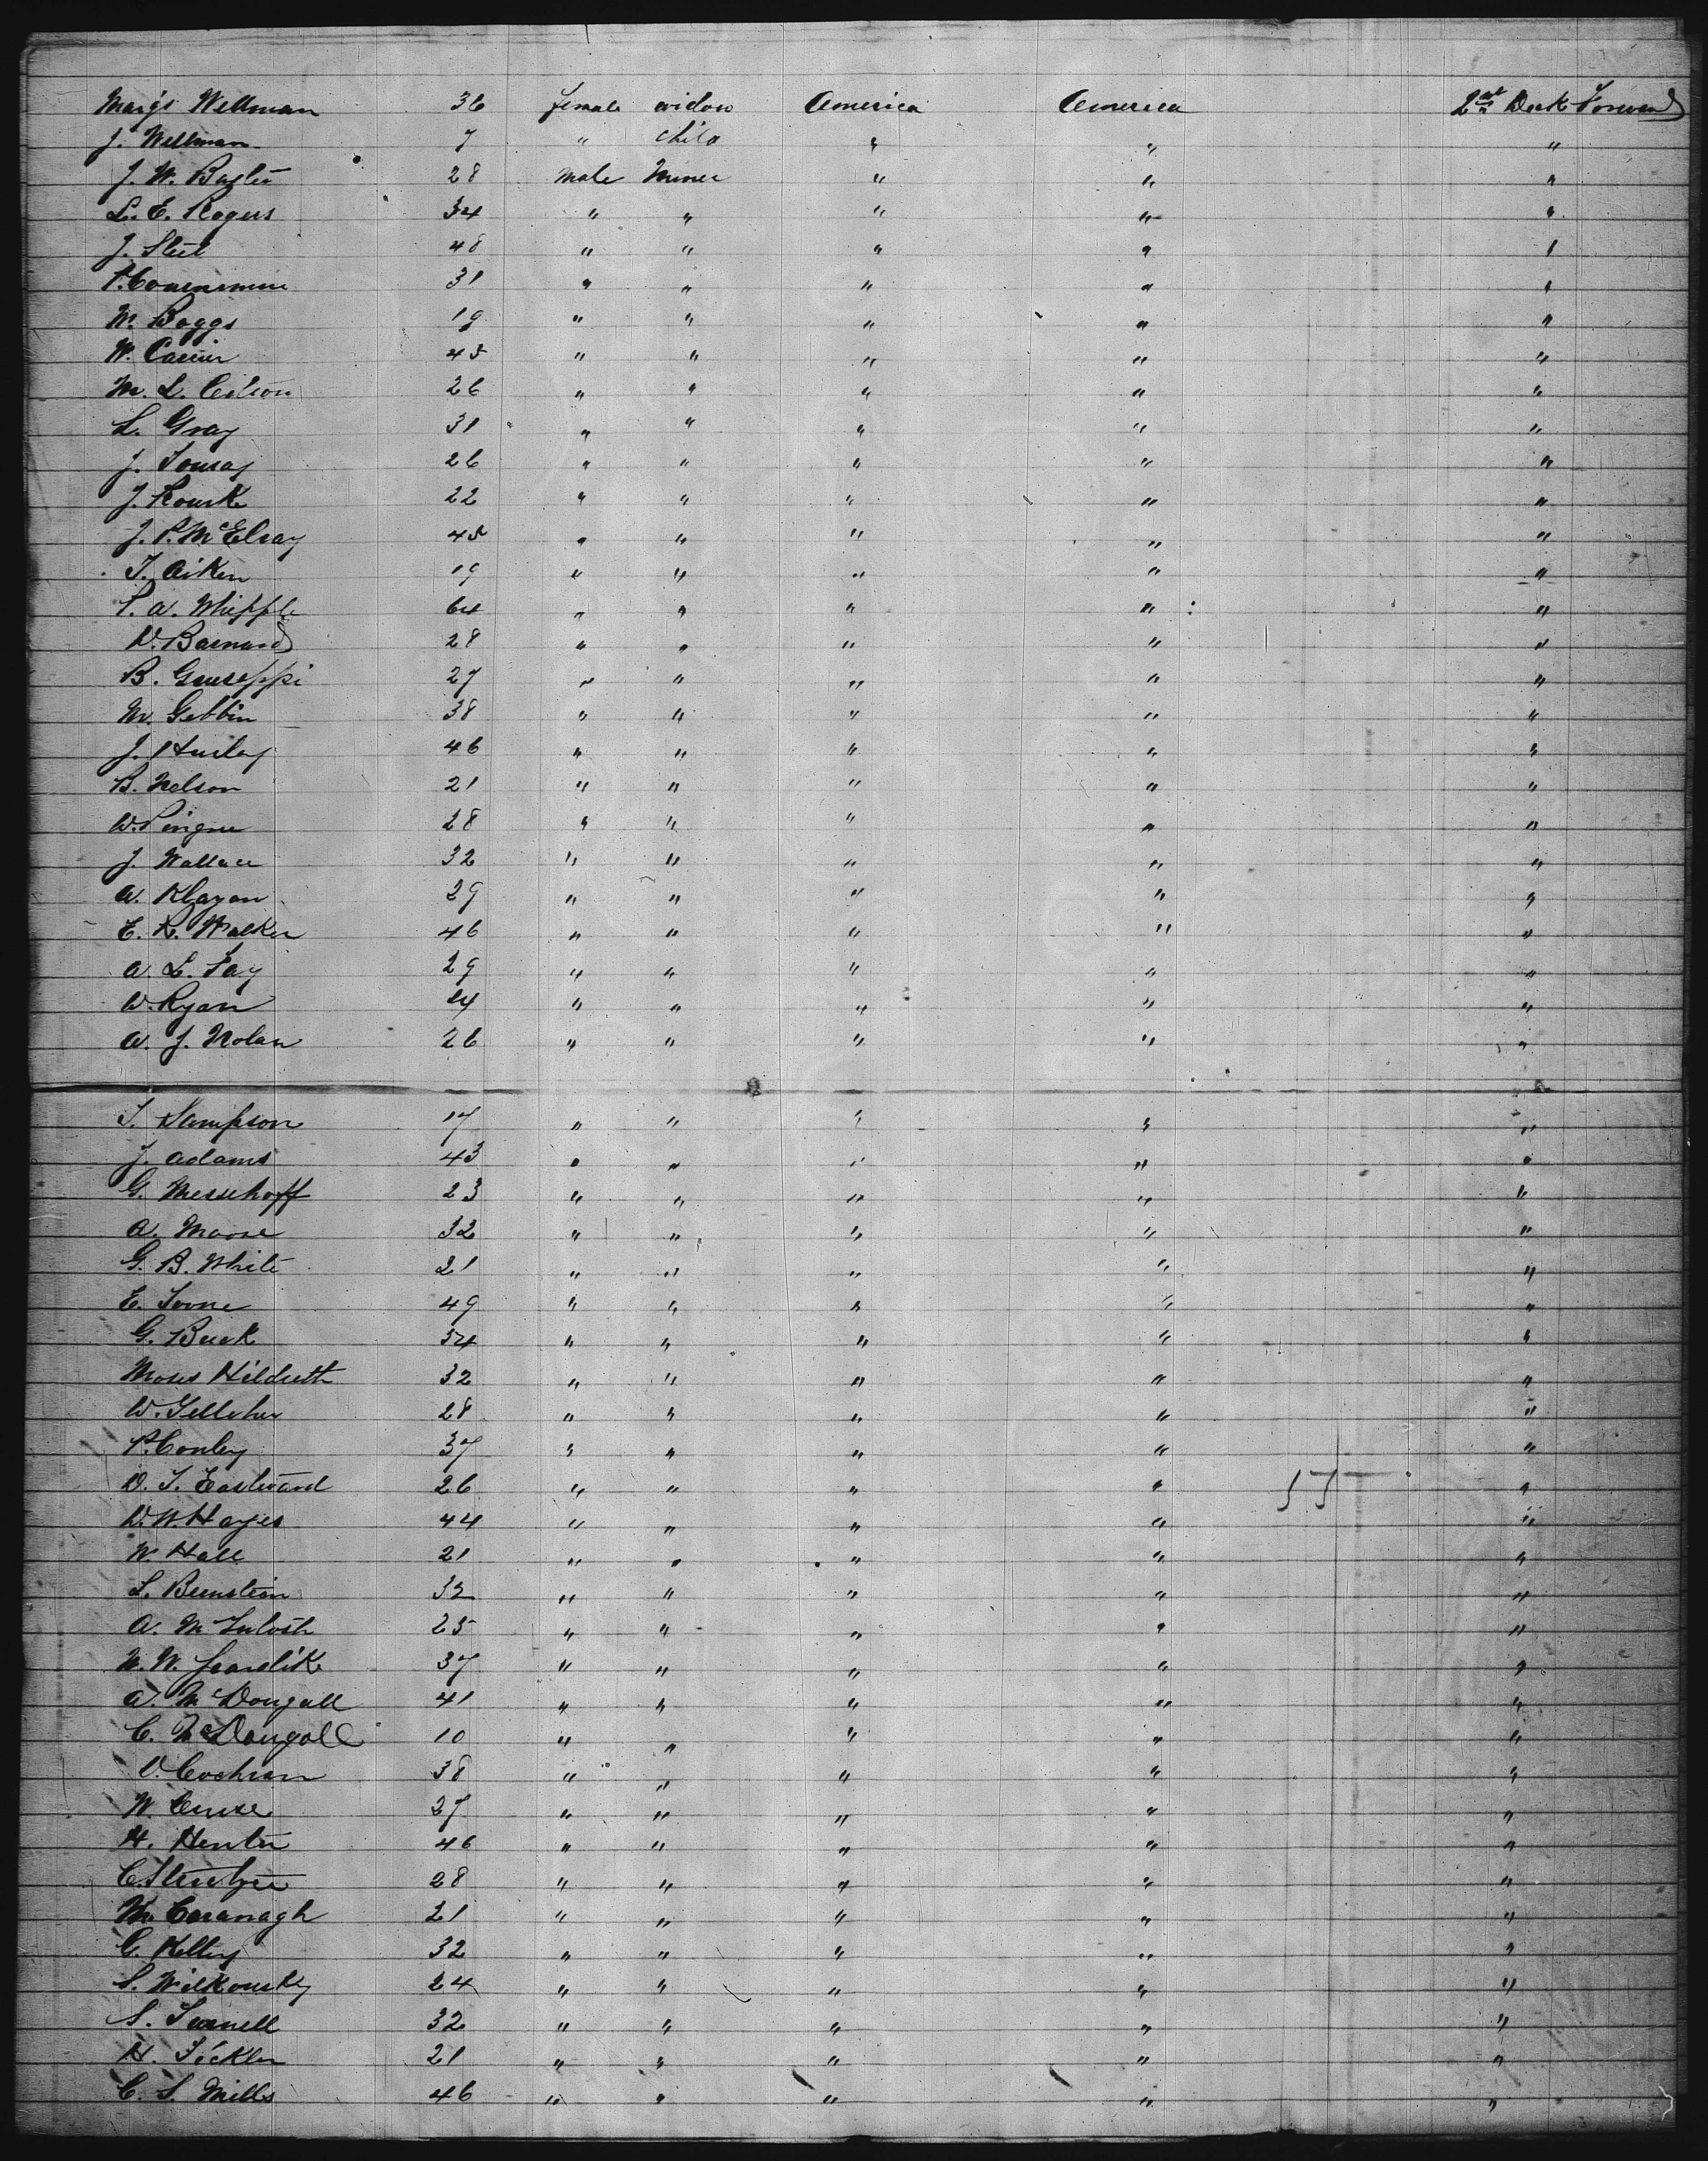 Marg's Wellman 36 female widow America America 2nd Deck Forward
J. Wellman 7 " child " " "
J. W. Baxter 28 male Miner " " "
L. E. Rogers 34 " " " " "
J. Steel 48 " " " " "
31 " " " " "
W. Boggs 19 " " " " "
W. Carrier 45 " " " " "
M. L. 26 " " " " "
L. Gray 31 " " " " "
J. 26 " " " " "
J. Rourk 22 " " " " "
J. P. McElray 45 " " " " "
T. Aiken 19 " " " " "
P. A. Whipple 64 " " " " "
D. Barnard 28 " " " " "
B. Guiseppi 27 " " " " "
M. Gebbin 38 " " " " "
J. Hurley 46 " " " " "
B. Nelson 21 " " " " "
W. Pingue 28 " " " " "
J. Wallace 32 " " " " "
A. Klayon 29 " " " " "
E. R. Walker 46 " " " " "
A. L. Fay 29 " " " " "
W. Ryan 24 " " " " "
A. J. Nolan 26 " " " " "
S. Sampson 17 " " " " "
J. Adams 43 " " " " "
G. Messehoff 23 " " " " "
A. Moore 32 " " " " "
G. B. White 21 " " " " "
E. Toone 49 " " " " "
G. Buck 34 " " " " "
Moses Hildreth 32 " " " " "
W. Gelleher 28 " " " " "
P. Conley 37 " " " " "
D. T. Eastward 26 " " " " "
D. W. Hayes 44 " " " " "
W. Hall 21 " " " " "
L. Bernstein 32 " " " " "
A. McIntosh 25 " " " " "
N. W. 37 " " " " "
A. McDougall 41 " " " " "
C. McDougall 10 " " " " "
D. Cochran 38 " " " " "
W. Cruse 27 " " " " "
H. Henter 46 " " " " "
C. 28 " " " " "
Wm. Cavanagh 21 " " " " "
G. Kelley 32 " " " " "
S. Wilkonsky 24 " " " " "
S. 32 " " " " "
H. Fickler 21 " " " " "
C. S. Mills 46 " " " " "